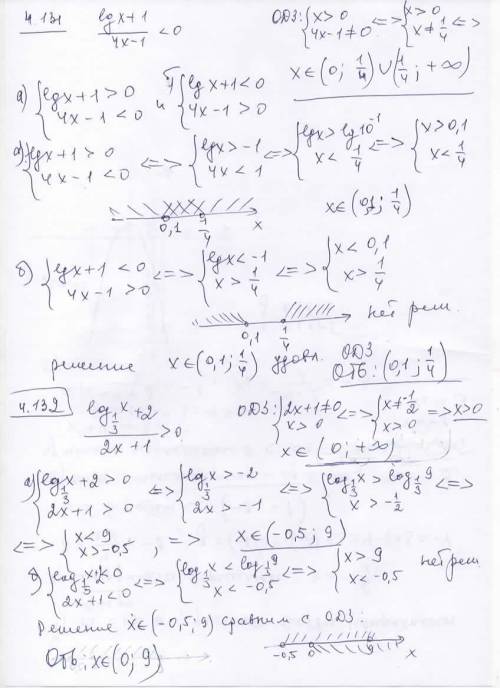 4.131 (lg x+1)/(4x-1) < 0 ОДЗ: { x>0 ; 4x-1≠0 <=> { x>0 ; x≠1/4 <=>
x∈(0; 1/4)∪(1/4; +∞)
а) { lg x+1>0 ; 4x-1<0 и б) { lg x+1<0 ; 4x-1>0
а) { lg x+1>0 ; 4x-1<0 <=> { lg x>-1 ; 4x<1 <=> { lg x>lg 10⁻¹ ; x<1/4 <=> { x>0,1 ; x<1/4
0,1 1/4 x x∈(0,1; 1/4)
б) { lg x+1<0 ; 4x-1>0 <=> { lg x<-1 ; x>1/4 <=> { x<0,1 ; x>1/4
0,1 1/4 нет реш.
решение x∈(0,1; 1/4) удовл. ОДЗ
Отв: (0,1; 1/4)
4.132 (log_{1/3} x+2)/(2x+1) > 0 ОДЗ: { 2x+1≠0 ; x>0 <=> { x≠-1/2 ; x>0 => x>0
x∈(0; +∞)
а) { log_{1/3} x+2>0 ; 2x+1>0 <=> { log_{1/3} x>-2 ; 2x>-1 <=> { log_{1/3} x>log_{1/3} 9 ; x>-1/2 <=>
<=> { x<9 ; x>-0,5 , => x∈(-0,5; 9)
б) { log_{1/3} x+2<0 ; 2x+1<0 <=> { log_{1/3} x<log_{1/3} 9 ; x<-0,5 <=> { x>9 ; x<-0,5 нет реш
Решение x∈(-0,5; 9) сравним с ОДЗ:
Отв: x∈(0; 9) -0,5 0 9 x